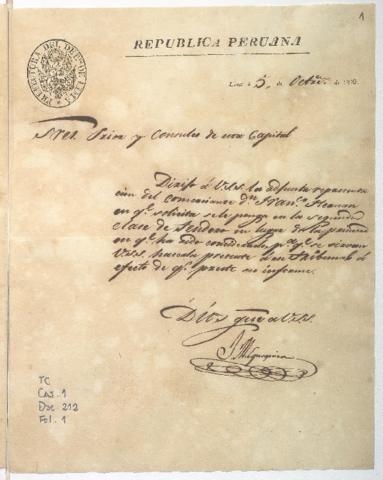 1
PREFECTURA DEL DEPTO. DE LIMA
REPUBLICA PERUANA
Lima á 5, de Octre. de 18
Sres. Prior y Consules de esta Capital
Dirijo á V.S.S. la adjunta representa
cion del comerciante Dn. Franco.
en qe. solicita se le ponga en la segunda
clase de Tendero en lugar de la primera
en qe. ha sido considerado, pa. qe. se sirvan
V.S.S. hacerla presente á ese Tribunal á
efecto de qe. preste su informe.
Dios gue. á V.S.S.
TC
Caj. 1
Doc. 212
Fol. 1